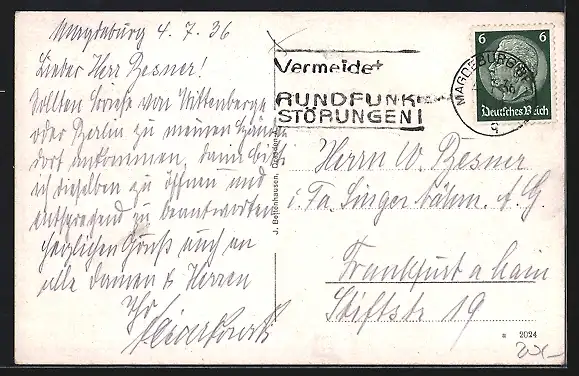 Magdeburg 4.7.36
Lieber Herr Resner!
Sollten Briefe von Wittenberge
oder Berlin zu meinen Händen
dort ankommen, dann bitte
ich dieselben zu öffnen und
entsprechend zu beantworten
herzlichen Gruß auch an
alle Damen & Herren
Ihr
Vermeidet
RUNDFUNK
STÖRUNGEN!
MAGDEBURG
6 6
Deutsches Reich
Herrn W. Resner
i. Fa. Singer A. G.
Frankfurt a Main
Stiftstr 19
J. Bettenhausen, Dresden
2024